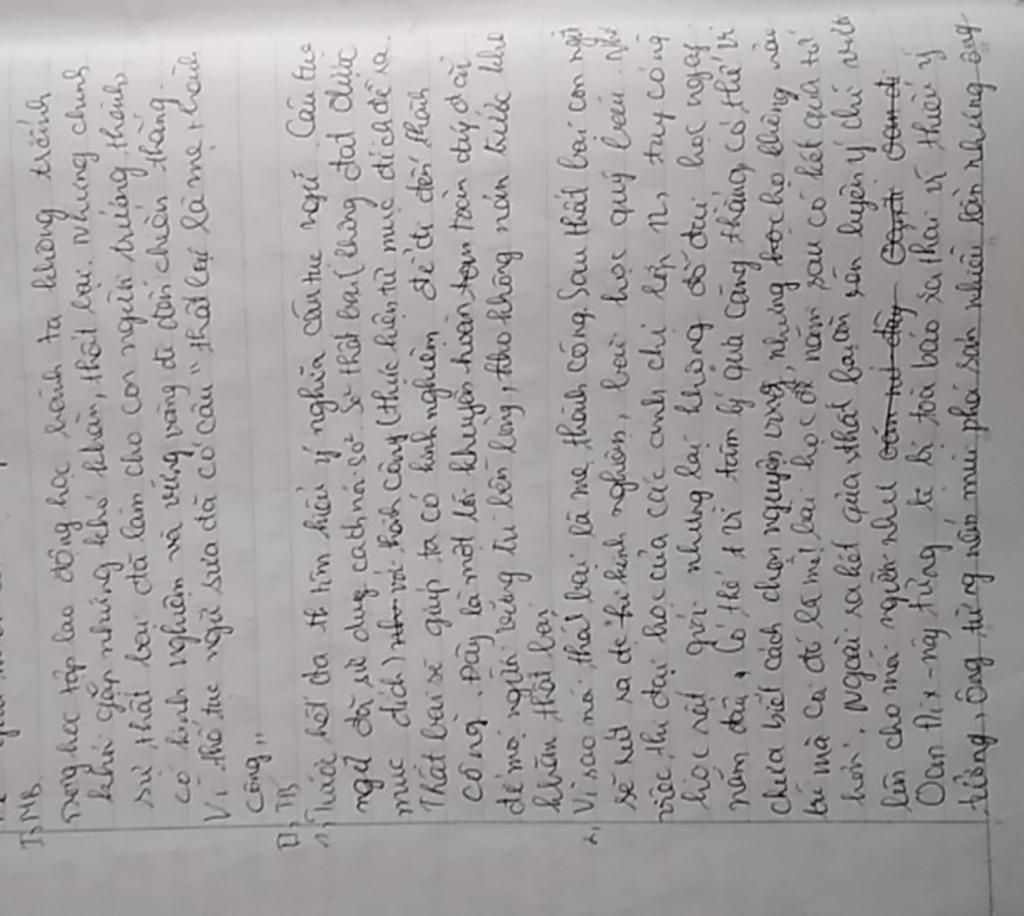 I, MB
Trong học tập lao động học hành ta không tránh
khỏi gặp những khó khăn, thất bại. Nhưng chính
sự thất bại đã làm cho con người trưởng thành,
có kinh nghiệm và vững vàng đi đến chiến thắng.
Vì thế tục ngữ xưa đã có câu "thất bại là mẹ thành
công"
II, TB
1, Trước hết ta tìm hiểu ý nghĩa câu tục ngữ. Câu tục
ngữ đã sử dụng cách so sánh Sự thất bại (không đạt được
mục đích) với thành công (thực hiện từ mục đích đề ra.
Thất bại sẽ giúp ta có kinh nghiệm để đi đến thành
công. Đây là một lời khuyên hoàn toàn đúng
để mọi người vững tin bền lòng, không nản trước khó
khăn thất bại,
2, Vì sao nói thất bại là mẹ thành công. Sau thất bại con người
sẽ rút ra được kinh nghiệm, bài học quý báu. Như
việc thi đại học của các anh, chị lớp 12, tuy có người
học rất giỏi nhưng lại không đỗ đại học ngay
năm đầu, Có thể vì tâm lý quá căng thẳng, có thể vì
chưa biết cách chọn nguyện vọng, nhưng họ không
mà coi đó là một bài học để năm sau có kết quả tốt
hơn. Ngoài ra kết quả thất bại còn rèn luyện ý chí vươn
lên cho mọi người như
Oan Đix-nây từng bị toà báo sa thải vì thiếu ý
tưởng, Ông từng nếm mùi phá sản nhiều lần nhưng ông